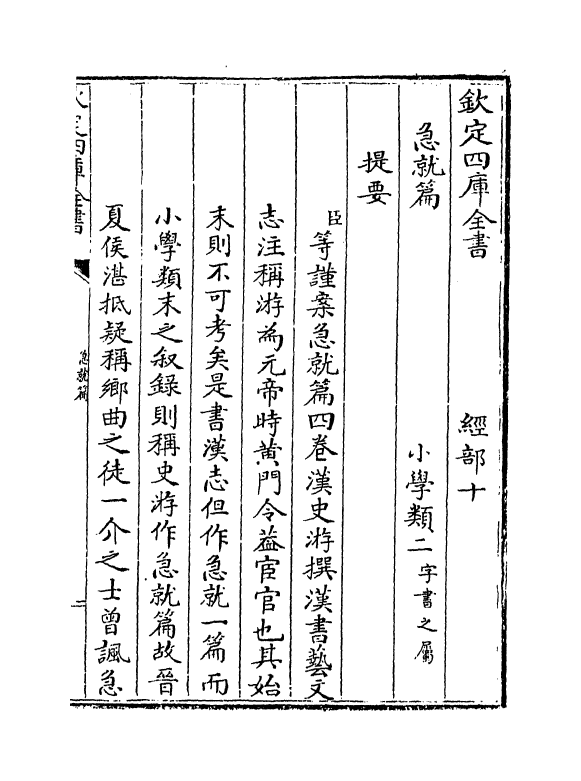 欽定四庫全書 經部十
急就篇 小學類二 字書之屬
提要
臣等謹案急就篇四卷漢史游撰漢書藝文
志注稱游為元帝時黄門令葢宦官也其始
末則不可考矣是書漢志但作急就一篇而
小學類末之叙錄則稱史游作急就篇故晉
夏侯湛抵疑稱鄉曲之徒一介之士曾諷急
欽定四庫全書
急就篇